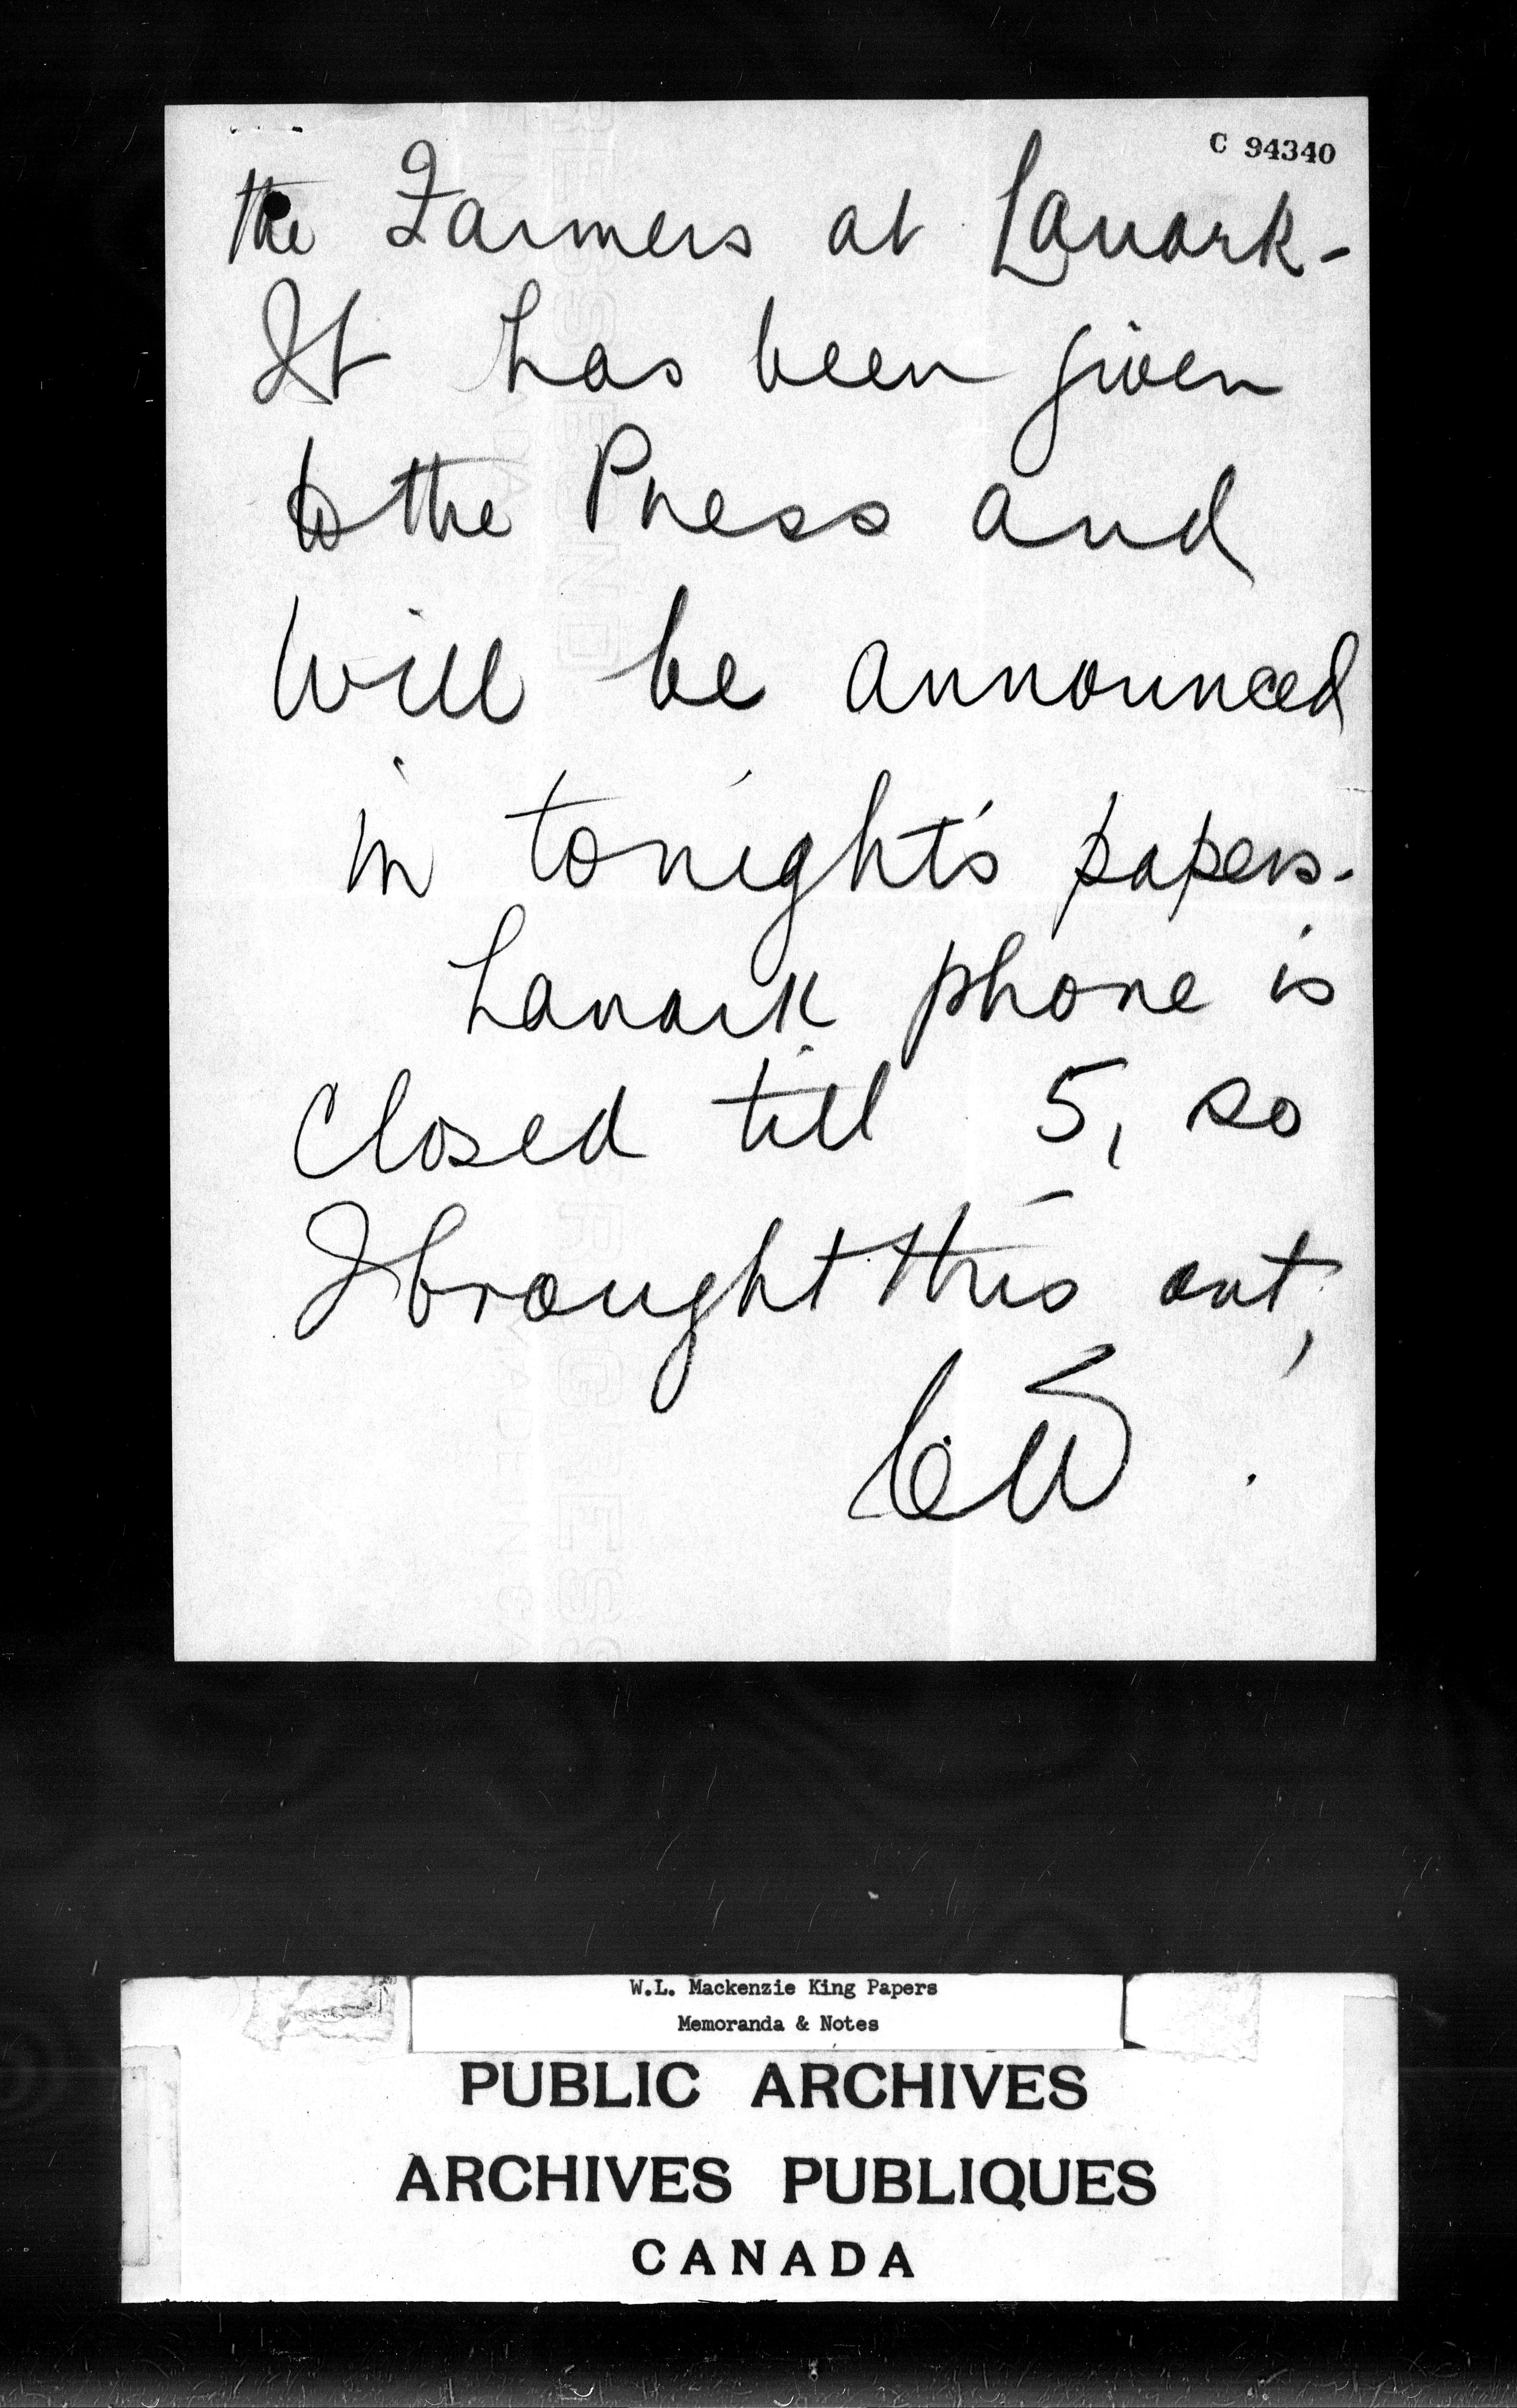 C 94340
the Farmers at Lanark-
It has been given
to the Press and
will be announced
in tonight's papers.
Lanark phone is
closed till 5, so
I brought this out,
W.L. Mackenzie King Papers
Memoranda & Notes
PUBLIC ARCHIVES
ARCHIVES PUBLIQUES
CANADA